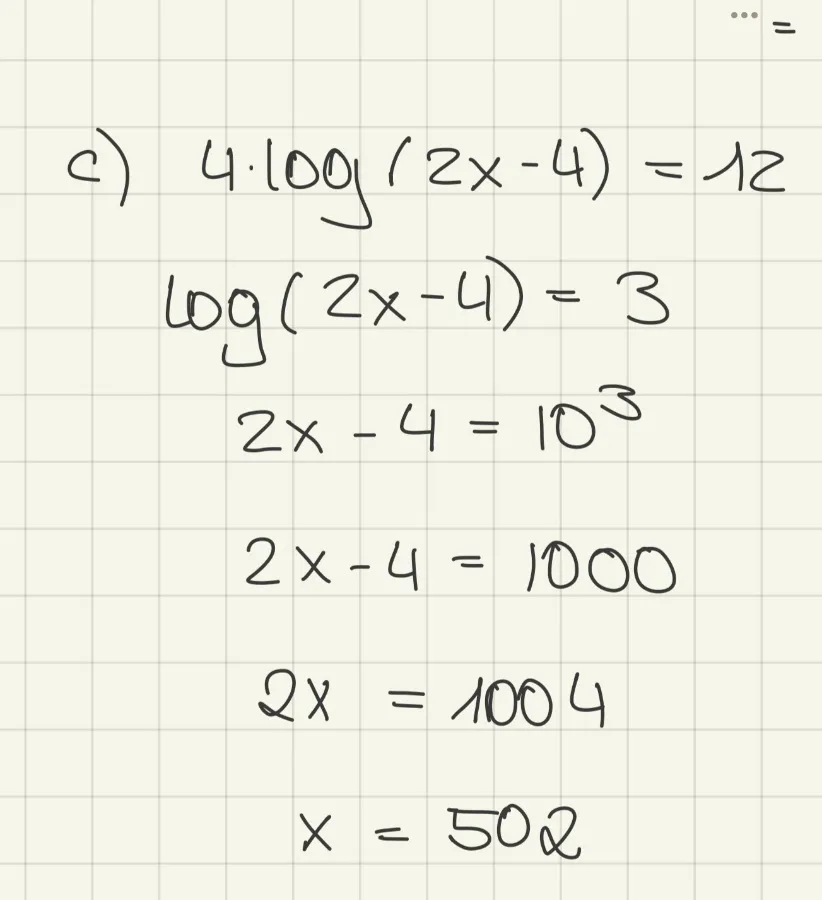 =
c) 4·log(2x-4) = 12
log(2x-4) = 3
2x - 4 = 10³
2x - 4 = 1000
2x = 1004
x = 502